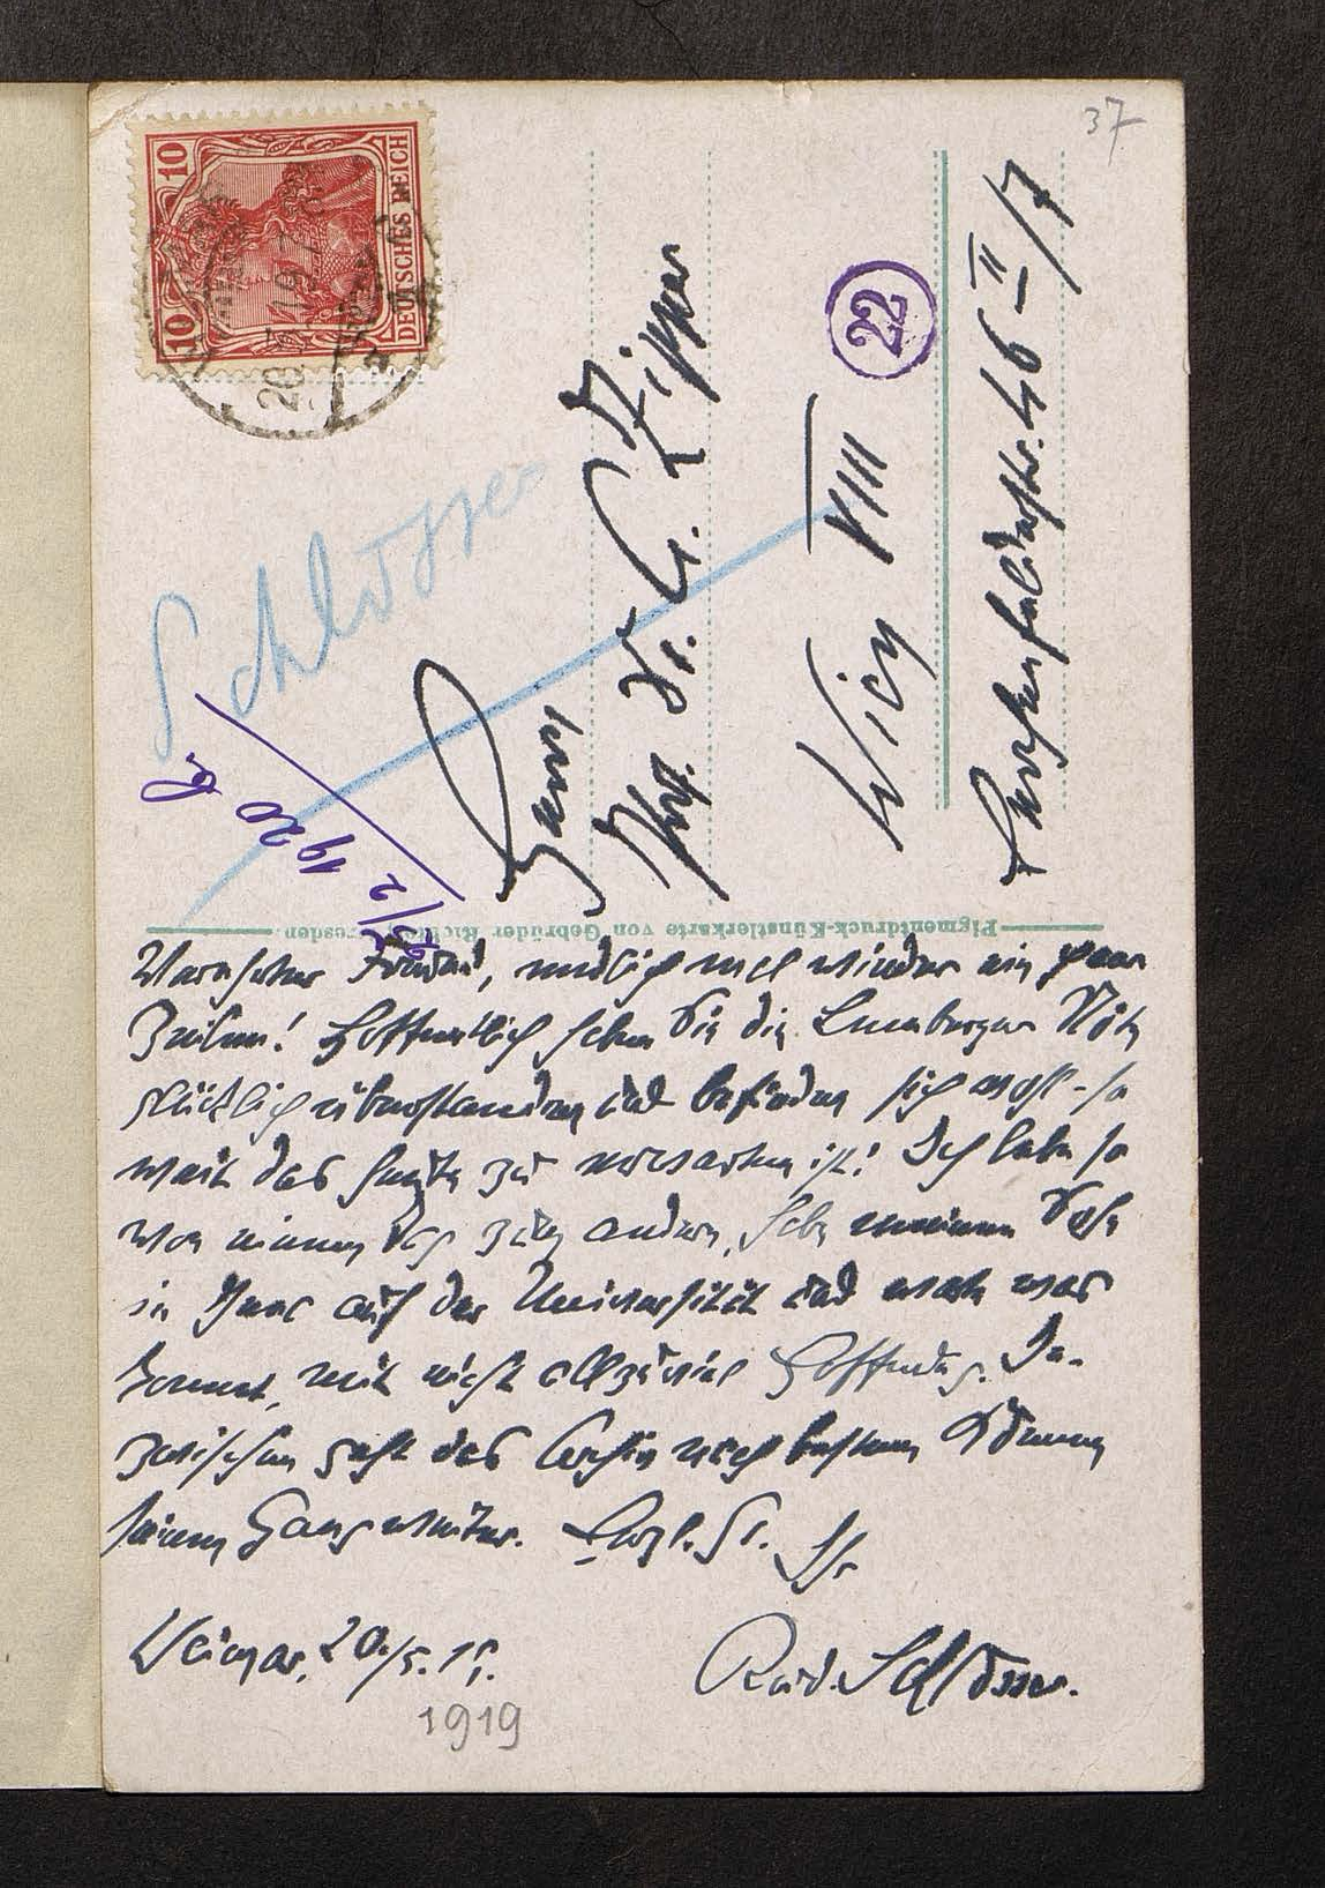 37
10
10
DEUTSCHES REICH
Schlösser
Herrn
Prof. Dr. O. Zipper
Wien VIII
22
46 II/7
1920
Pigmentdruck-Künstlerkarte von Gebrüder Richter, Dresden
Verehrter Freund, endlich mal wieder ein paar
Zeilen! Hoffentlich haben Sie die Lemberger Nöte
glücklich überstanden und befinden sich wohl - so
weit das heute zu erwarten ist! Ich lebe so
von einem Tag zum andern, habe meinen Sohn
in Jena auf der Universität und warte was
kommt, mit nicht allzuviel Hoffnung. In-
zwischen geht das Archiv nach besten Können
seinen Gang weiter. Herzl. Gr. Ihr
Weimar, 20./5. 19.
Rud. Schlösser.
1919